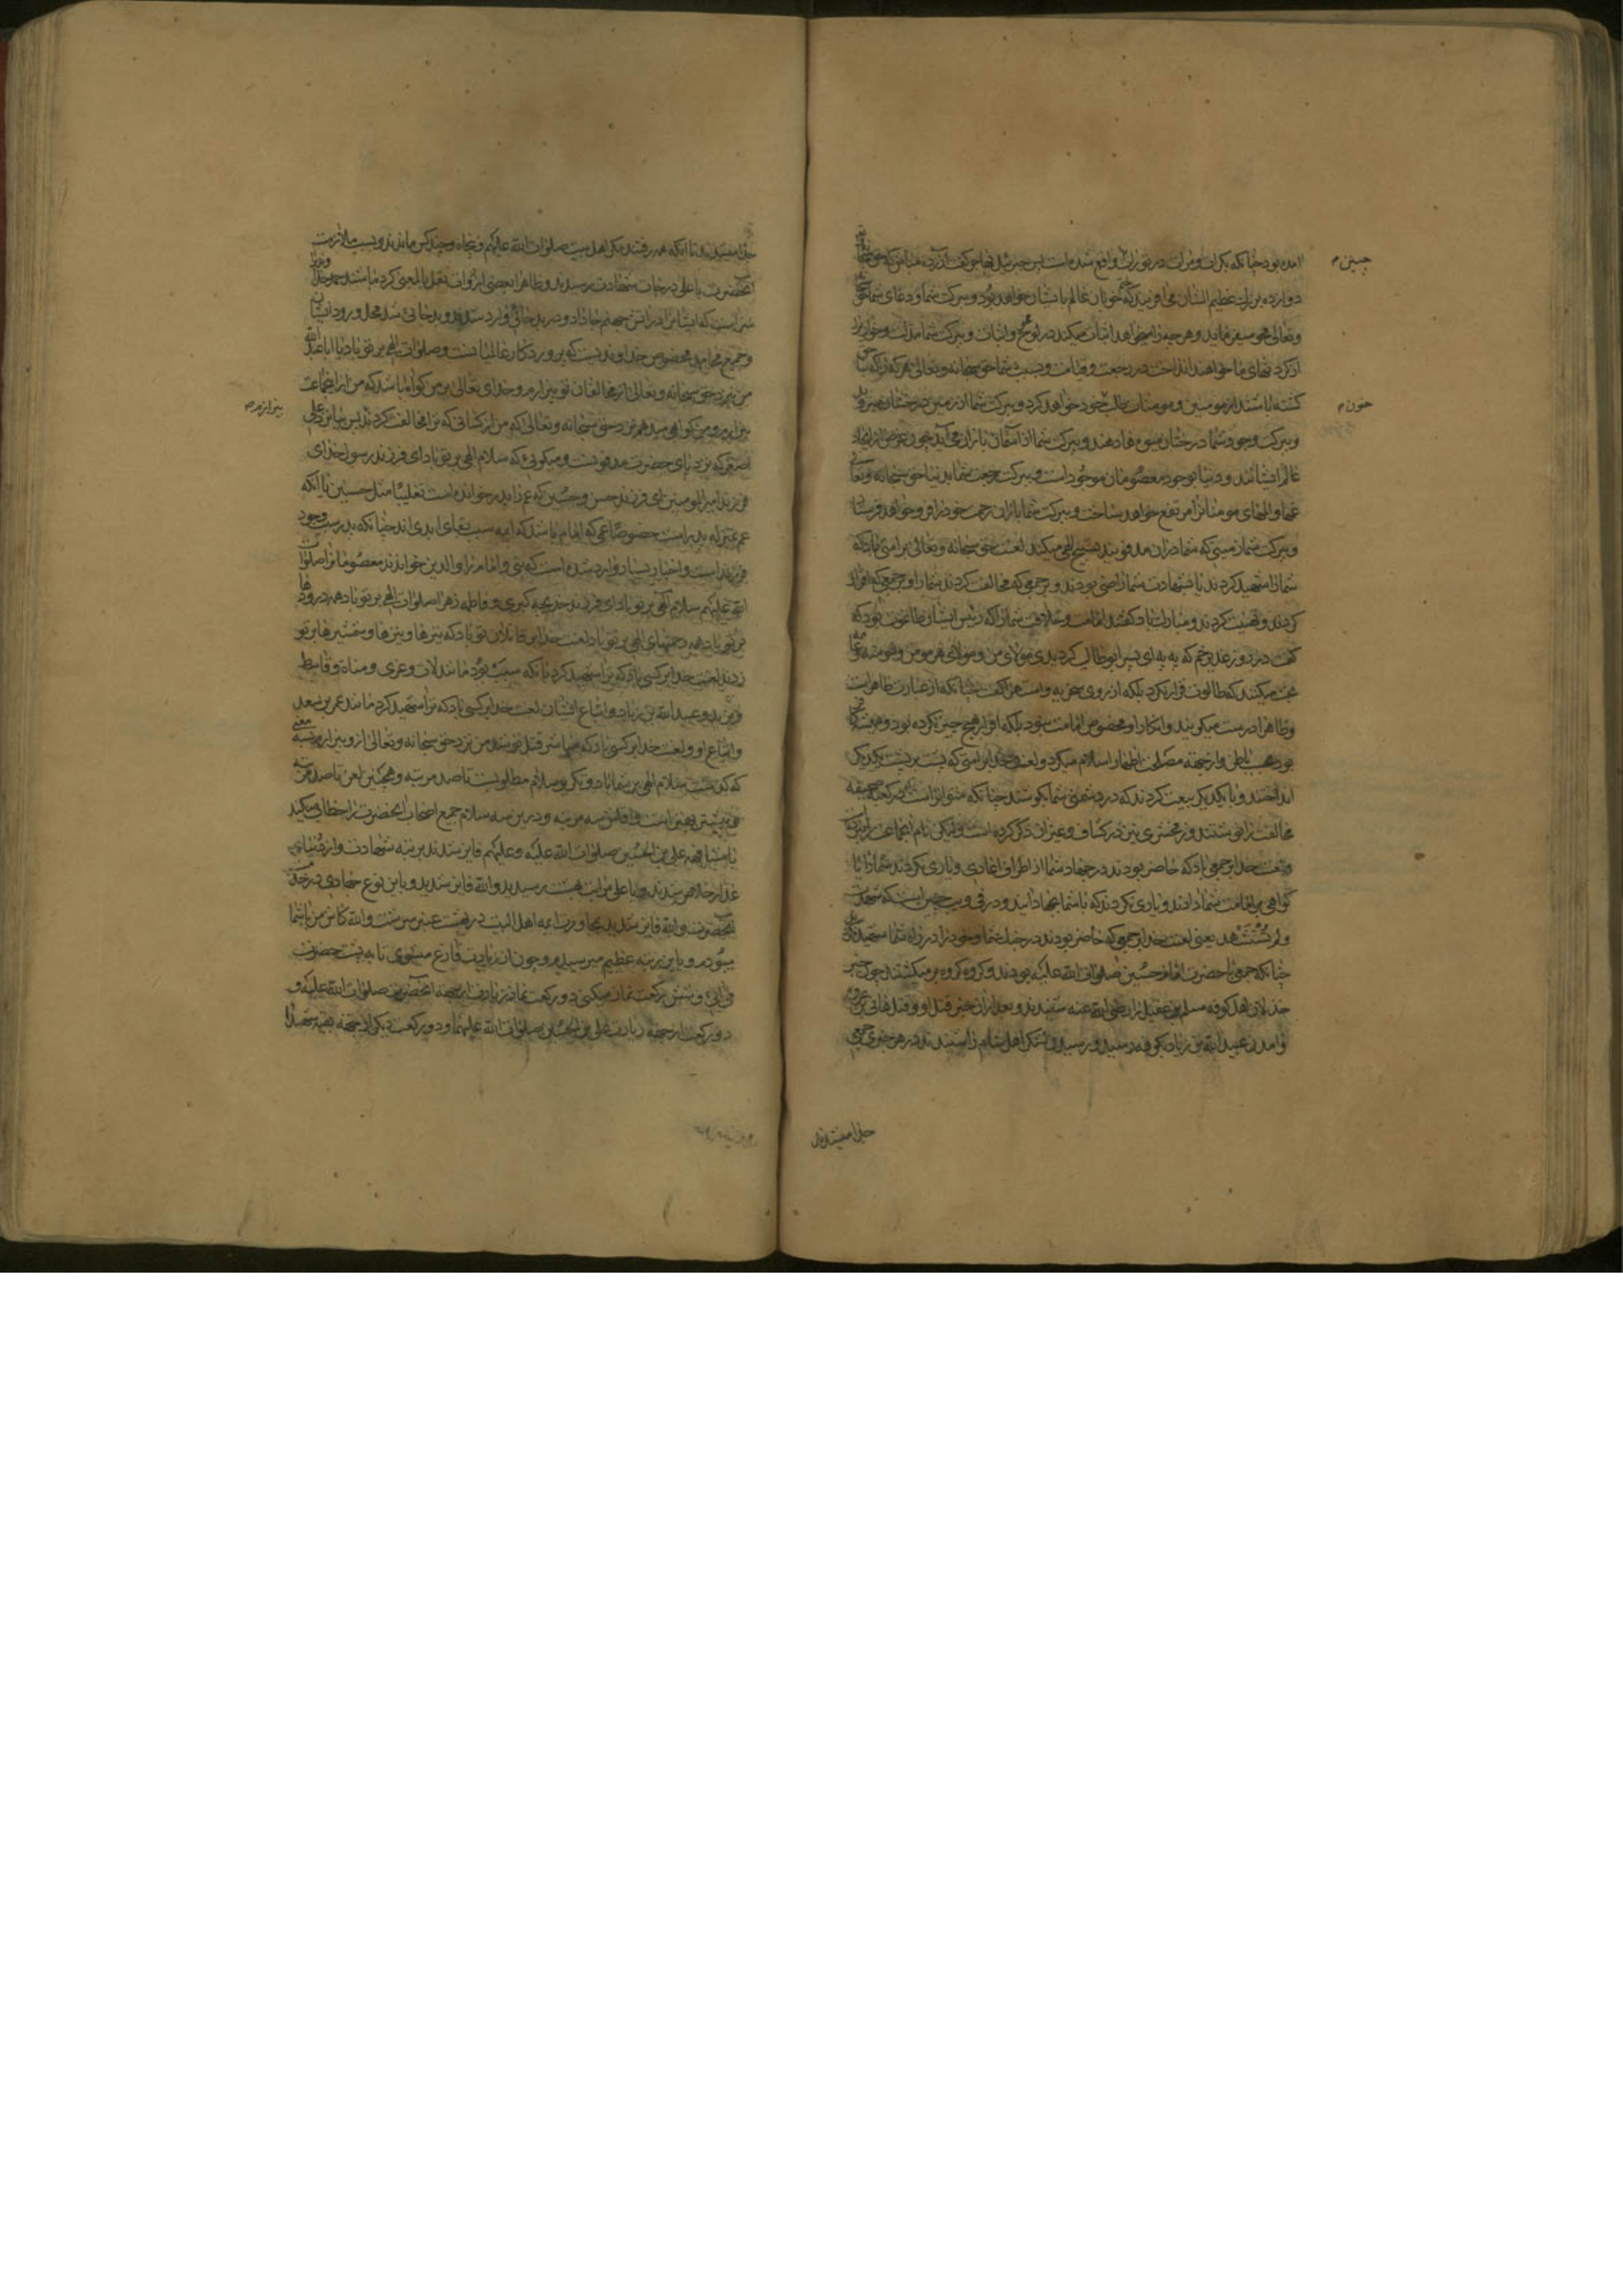 آمده بود چنانکه بکرات و مرات در تورات واقع شده است پس جبرئیل
دوازده بزرگ عظیم الشان می آفرینید که خوبان عالم با ایشان خواهند بود و ببرکت شما و دعای شما حق
و تعالی محو میفرماید و هر چه را میخواهد اثبات میکند در لوح محو و اثبات و ببرکت شما مذلت و خواری را
از گردنهای ما خواهند انداخت در رجعت و قیامت و بسبب شما حق سبحانه و تعالی هر که را که
کشته باشند از مومنین و مومنات طالب خون خود خواهد کرد و ببرکت شما از زمین درختان میروید
و ببرکت وجود شما درختان میوه ها دهند و ببرکت شما از آسمان باران می آید چون غرض از ایجاد
عالم ایشانند و دنیا بوجود معصومان موجود است و ببرکت رجعت شما بدنیا حق سبحانه و تعالی
غمها و المهای مومنانرا مرتفع خواهد ساخت و ببرکت شما باران رحمت خود را فرو خواهد فرستاد
و ببرکت شما زمینی که شما در ان مدفونید تسبیح الهی میکند لعنت حق سبحانه و تعالی بر امتی باد که
شما را شهید کردند یا بشهادت شما راضی بودند و بر جمعی که مخالفت کردند شما را و بر جمعی که اقرار
کردند و تهنیت کردند و مبارکباد گفتند امامت و خلافت شما را که رئیس ایشان طاغوت بود که
گفت در روز غدیر خم که به به ای پسر ابوطالب گردیدی مولای من و مولای هر مومن و مومنه
بحث میکنند که طالوت قرار نکرد بلکه از روی سخریه و استهزا گفت چنانکه از عبارت ظاهرست
و ظاهرا درست میگویند و انکار او مخصوص امامت نبود بلکه اقرار بهیچ چیز نکرده بود و همیشه کافر
بود بحسب باطن و از جهة مصلحت اظهار اسلام میکرد و لعنت خدا بر امتی که پشت بر پشت یکدیگر
انداختند و با یکدیگر بیعت کردند که در دشمنی شما بکوشند چنانکه متواترست که در کعبه صحیفه
مخالفت را نوشتند و زمخشری نیز در کشاف و غیر ان ذکر کرده است و لیکن نام انجماعت را نبرده
و لعنت خدا بر جمعی باد که حاضر بودند در جهاد شما از اطراف اعادی و یاری نکردند شما را یا
گواهی بر امامت شما دادند و یاری نکردند که با شما بجهاد آیند و در قی و یب چنین است که شهدت
ولم تستشهد یعنی لعنت خدا بر جمعی که حاضر بودند در جنگ شما و خود را در راه شما شهید نکردند
چنانکه جمعی با حضرت امام حسین صلوات الله علیه بودند و گروه گروه برمیگشتند چون خبر
خذلان اهل کوفه مسلم بن عقیل را رضی الله عنه شنیدند و بعد از ان خبر قتل او و قتل هانی بن عروه
و آمدن عبید الله بن زیاد بکوفه رسید و رسیدن لشکر اهل شام را شنیدند در هر خبری جمعی
جدا میشدند
چنین م
خون م
جدا میشدند تا آنکه همه رفتند مگر اهل بیت صلوات الله علیهم و پنجاه و چند کس ماندند و بسبب ملازمت
آنحضرت باعلی درجات شهادت رسیدند و ظاهرا بعضی از روات نقل بالمعنی کرده باشند حمد خدا
سزاست که ایشانرا در آتش جهنم جا داد و در بد جائی وارد شدند و بد جائی شد محل ورود ایشان
و جمیع محامد مخصوص خداوندیست که پروردکار عالمیانست و صلوات الهی بر تو باد یا ابا عبدالله
من نزد حق سبحانه و تعالی از مخالفان تو بیزارم و خدای تعالی بر من گواه باشد که من از انجماعت
بیزارم و من گواهی میدهم نزد حق سبحانه و تعالی که من از کسانی که ترا مخالفت کردند پس بیا نزد علی
اصغر که نزد پای حضرت مدفونست و میگوئی که سلام الهی بر تو باد ای فرزند رسول خدای
فرزند امیر المومنین ای فرزند حسن و حسین که عم را پدر خوانده است تغلیبا مثل حسنین یا آنکه
عم بمنزله پدر است خصوصا عمی که امام باشد که ایمه سبب بقای ابدی اند چنانکه پدر سبب وجود
فرزند است و اخبار بسیار وارد شده است که نبی و امام را والدین خواندند معصومانرا صلوات
الله علیهم سلام الهی بر تو باد ای فرزند خدیجه کبری و فاطمه زهرا صلوات الهی بر تو باد همه درودها
بر تو باد همه رحمتهای الهی بر تو باد لعنت خدا بر قاتلان تو باد که تیرها و نیزها و شمشیرها بر تو
زدند لعنت خدا بر کسی باد که ترا شهید کرد بآنکه سبب بود مانند لات و عزی و مناة و قاسط
و یزید و عبید الله بن زیاد و اتباع ایشان لعنت خدا بر کسی باد که ترا شهید کرد مانند عمر بن سعد
و اتباع او و لعنت خدا بر کسی باد که مباشر قتل تو شد من نزد حق سبحانه و تعالی از و بیزارم
که گذشت سلام الهی بر شما باد و تکریر سلام مطلوبست تا صد مرتبه و همچنین لعن تا صد مرتبه
هر چه بیشتر بهتر است و اقلش سه مرتبه و درین سه سلام جمیع اصحاب آنحضرت را خطاب میکند
بمشافهه علی بن الحسین صلوات الله علیه و علیهم فایز شدند بمرتبه شهادت و از دنیای
غدار خلاص شدند و باعلی مراتب بهشت رسیدید و الله فایز شدید و باین نوع جهادی در خدمت
آنحضرت و الله فایز شدید بمجاورت ایمه اهل البیت در بهشت عنبر سرشت و الله کاش من با شما
میبودم و باین مرتبه عظیم میرسیدم و چون از زیارت فارغ میشوی تا به پشت حضرت
می آئی و شش رکعت نماز میکنی دو رکعت نماز زیارت از جهة آنحضرت صلوات الله علیه و
دو رکعت از جهة زیارت علی بن الحسین صلوات الله علیهما و دو رکعت دیگر از جهة بقیه شهدا
بیزارم م